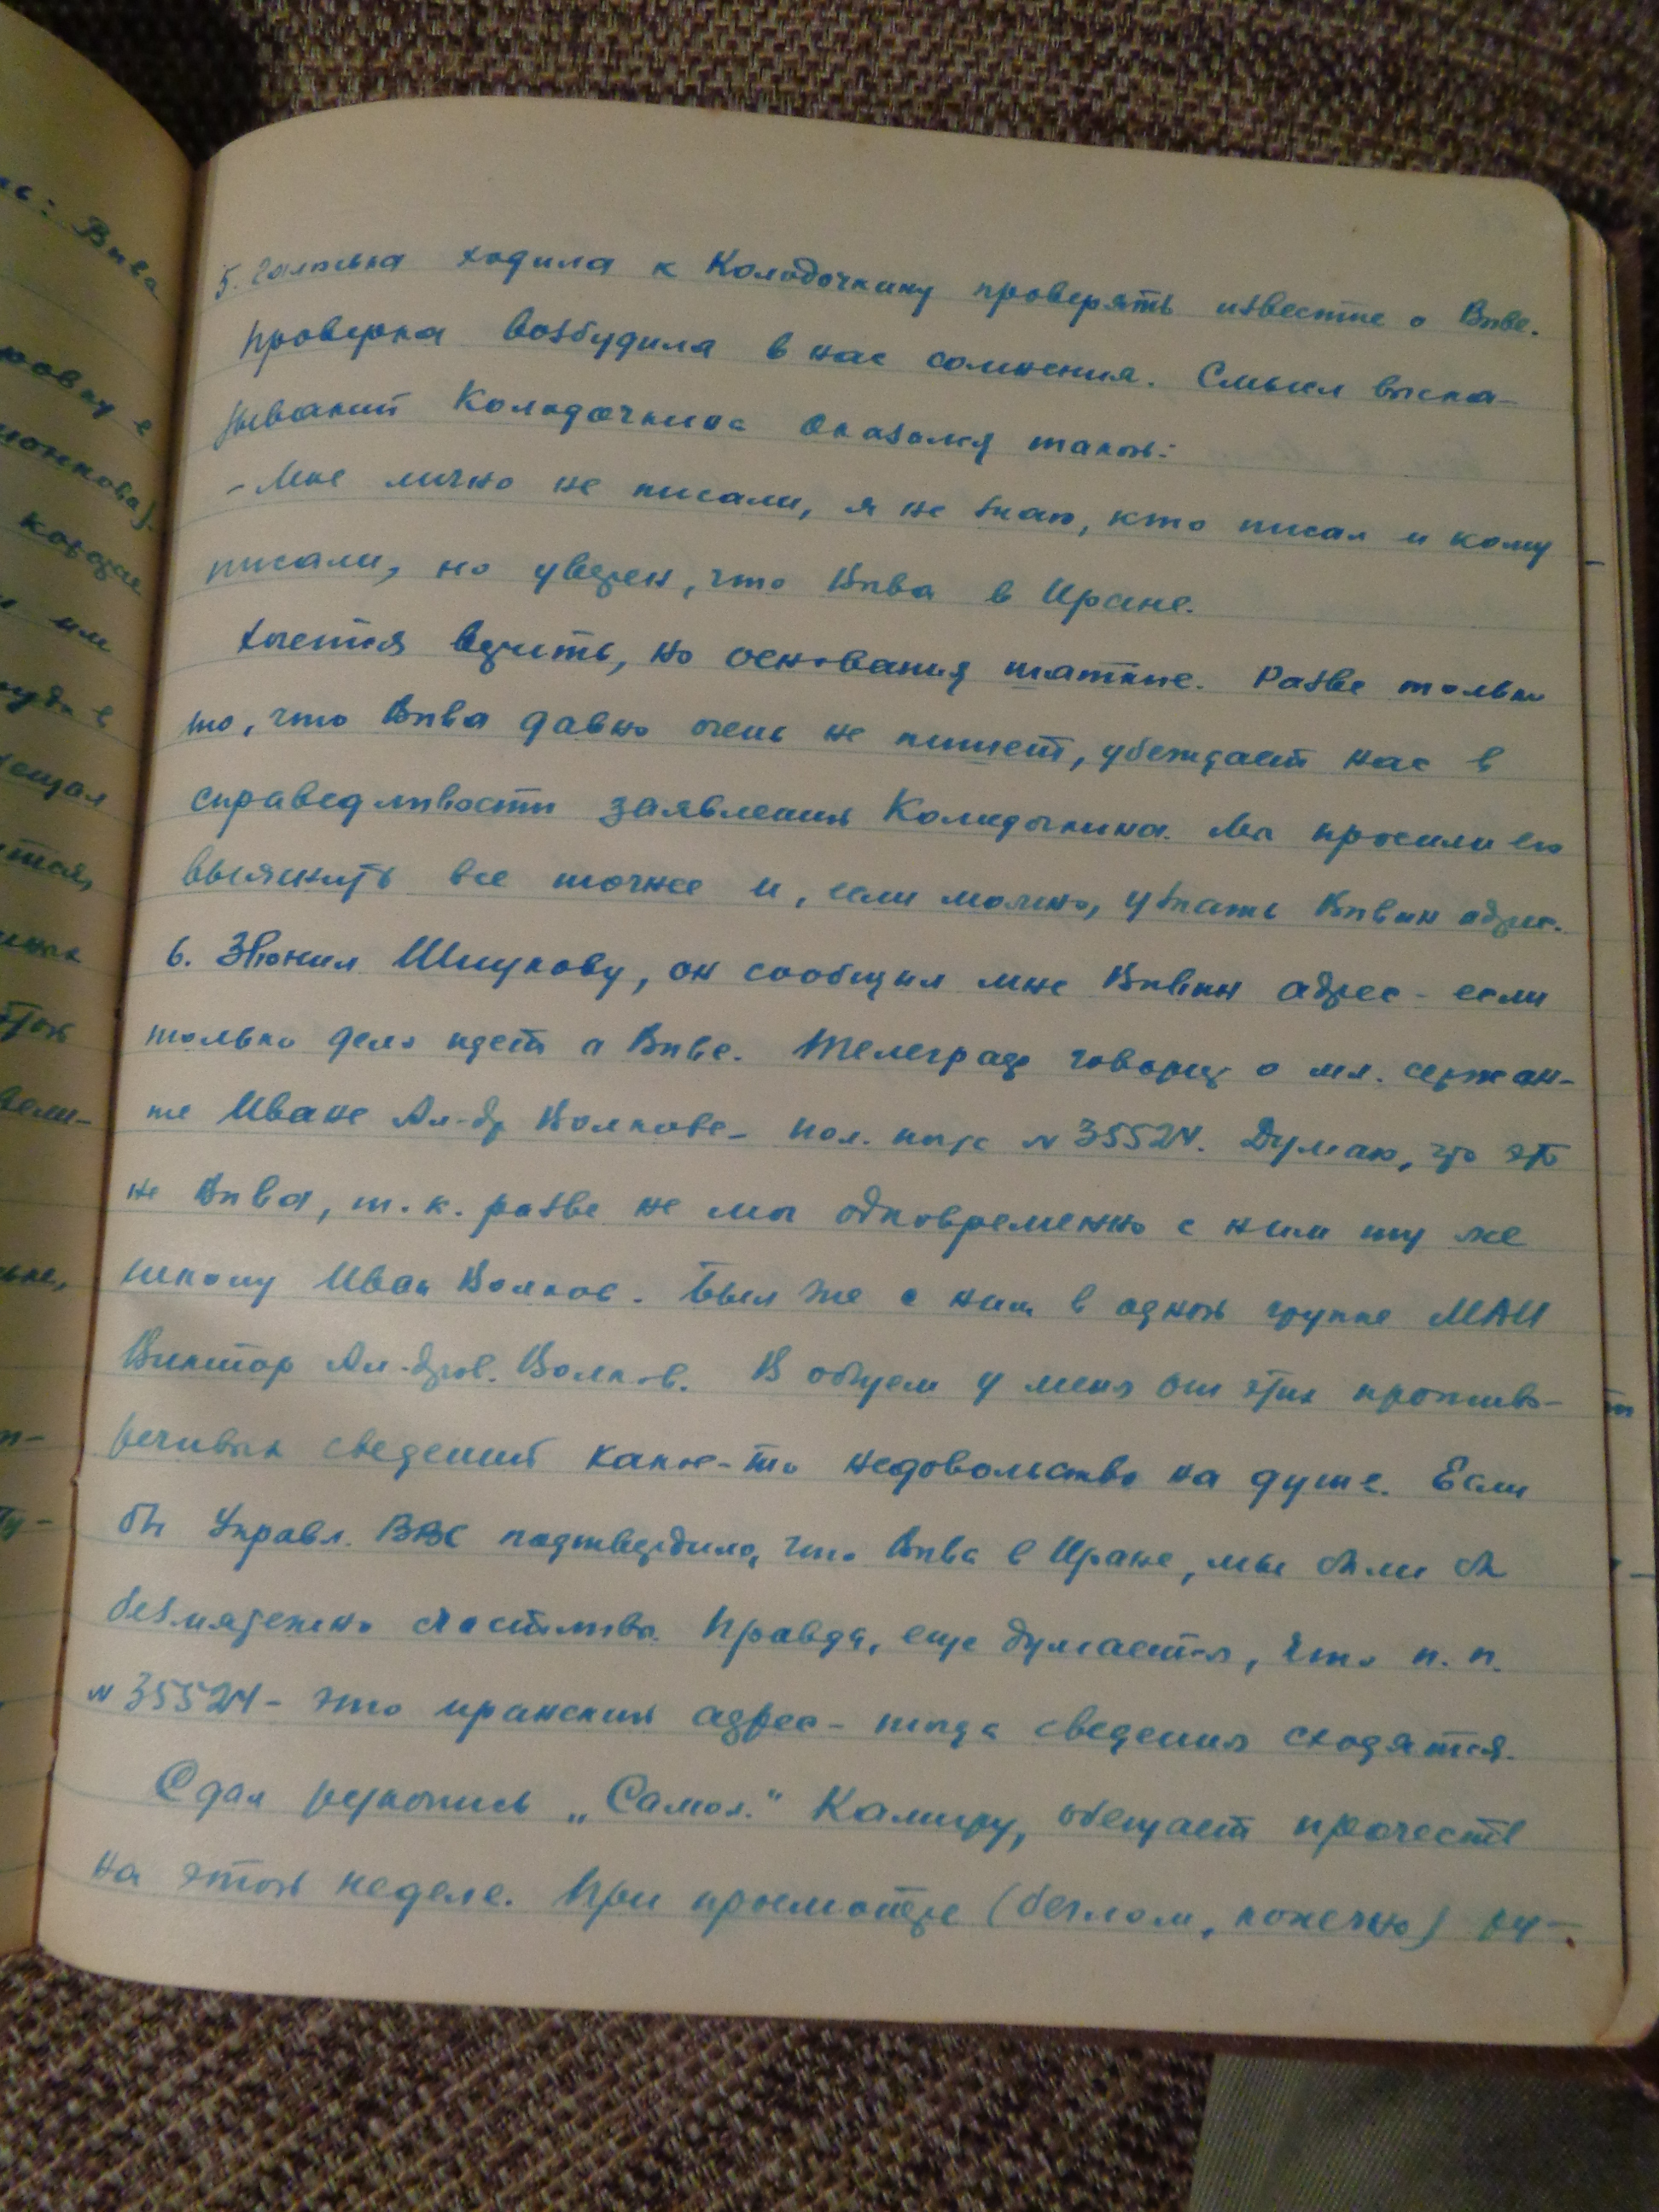 5. Галюська ходила к Колодочкину проверять известие о Виве.
Проверка возбудила в нас сомнения. Смысл выска-
зываний Колодочкина оказался таков:
- Мне лично не писали, я не знаю, кто писал и кому
писали, но уверен, что Вива в Иране.
Хочется верить, но основания шаткие. Разве только
то, что Вива давно очень не пишет, убеждает нас в
справедливости заявления Колодочкина. Мы просили его
выяснить все точнее и, если можно, узнать Вивин адрес.
6. Звонил Шмукову, он сообщил мне Вивин адрес - если
только дело идет о Виве. Телеграф говорит о мл. сержан-
те Иване Ал-др Волкове - пол. почт N 35524. Думаю, что это
не Вива, т.к. разве не мог одновременно с ним ту же
школу Иван Волков. Был же с ним в одной группе МАИ
Виктор Ал-дров. Волков. В общем у меня от этих противо-
речивых сведений какое-то недовольство на душе. Если
бы Управл. ВВС подтвердило, что Вива в Иране, мы были бы
безмятежно счастливы. Правда, еще думается, что п.п.
N 35524 - это иранский адрес - тогда сведения сходятся.
Сдал рукопись „Самол." Камиру, обещает прочесть
на этой неделе. При просмотре (беглом, конечно) ру-